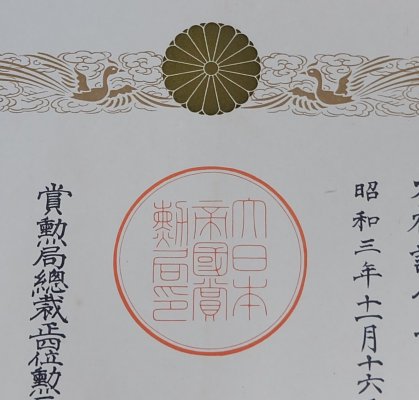 昭和三年十一月十六
大日本
帝國賞
勳局印
賞勳局總裁正四位勳